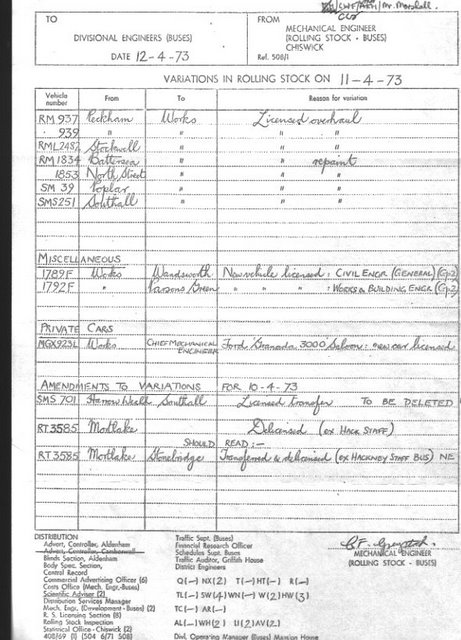 CWF/ Mr. Marshall.
TO
DIVISIONAL ENGINEERS (BUSES)
DATE 12-4-73
FROM
MECHANICAL ENGINEER
(ROLLING STOCK - BUSES)
CHISWICK
Ref. 508/1
VARIATIONS IN ROLLING STOCK ON 11-4-73
Vehicle number From To Reason for variation
RM 937 Peckham Works Licensed overhaul
" 939 " " " "
RML2487 Stockwell " " "
RM 1834 Battersea " " repaint
1853 North Street " " "
SM 39 Poplar " " "
SMS251 Southall " " "
MISCELLANEOUS
1789F Works Wandsworth New vehicle licensed: CIVIL ENGR (GENERAL) (Gp2)
1792F " Parsons Green " " " : WORKS & BUILDING ENGR (Gp2)
PRIVATE CARS
MGX923L Works CHIEF MECHANICAL ENGINEER Ford Granada 3000 Saloon: new car licensed
AMENDMENTS TO VARIATIONS FOR 10-4-73
SMS 701 Harrow Weald Southall Licensed transfer TO BE DELETED
RT 3585 Mortlake Delicensed (ex HACK STAFF)
SHOULD READ:-
RT 3585 Mortlake Stonebridge Transferred & delicensed (ex HACKNEY STAFF BUS) NE
DISTRIBUTION
Advert. Controller, Aldenham
Advert. Controller, Camberwell
Blinds Section, Aldenham
Body Spec. Section,
Central Record
Commercial Advertising Officer (6)
Costs Office (Mech. Engr.-Buses)
Scientific Adviser (2)
Distribution Services Manager
Mech. Engr. (Development-Buses) (2)
R. S. Licensing Section (8)
Rolling Stock Inspection
Statistical Office - Chiswick (2)
408/69 (1) (504 6/71 508)
Traffic Supt. (Buses)
Financial Research Officer
Schedules Supt. Buses
Traffic Auditor, Griffith House
District Engineers
Q(-) NX(2) T(-) HT(-) R(-)
TL(-) SW(4) WN(-) W(2) HW(3)
TC(-) AR(-)
AL(-) WH(2) U(2) AV(2)
Divl. Operating Manager (Buses) Mansion House
MECHANICAL ENGINEER
(ROLLING STOCK - BUSES)